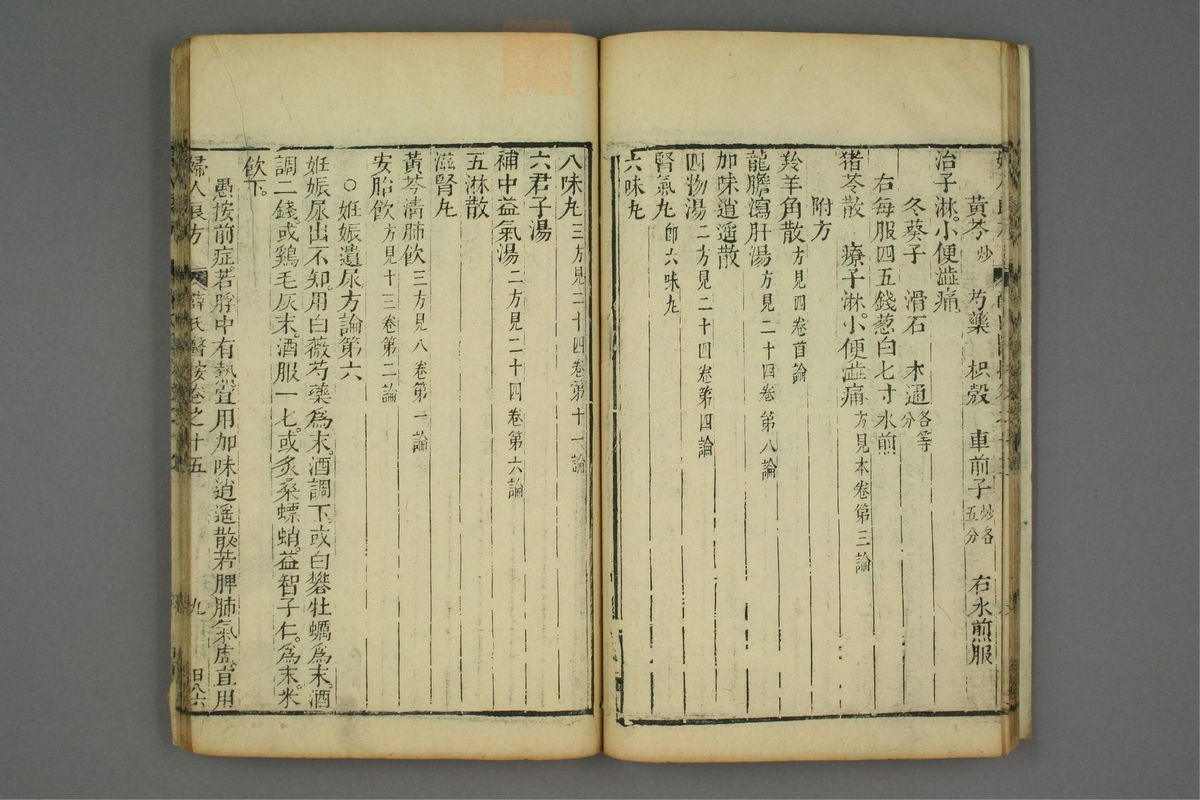 黃芩炒　芍藥　枳殼　車前子炒各五分　右水煎服
治子淋小便澁痛
冬葵子　滑石　木通各等分
右每服四五錢葱白七寸水煎
附方
猪苓散　療子淋小便澁痛方見本卷第三論
羚羊角散方見四卷首論
龍膽瀉肝湯方見二十四卷第八論
加味逍遙散
四物湯二方見二十四卷第四論
腎氣丸卽六味丸
六味丸
八味丸三方見二十四卷第十一論
六君子湯
補中益氣湯二方見二十四卷第六論
五淋散
滋腎丸
黃芩淸肺飮三方見八卷第一論
安胎飮方見十三卷第二論
○妊娠遺尿方論第六
妊娠尿出不知。用白薇芍藥爲末。酒調下。或白礬牡蠣爲末。酒
調二錢。或鷄毛灰末。酒服一匕。或炙桑螵蛸。益智子仁。爲末。米
飮下。
愚按前症若脬中有熱宜用加味逍遙散若脾肺氣虛宜用
婦人良方　薛氏醫按卷之十五　九